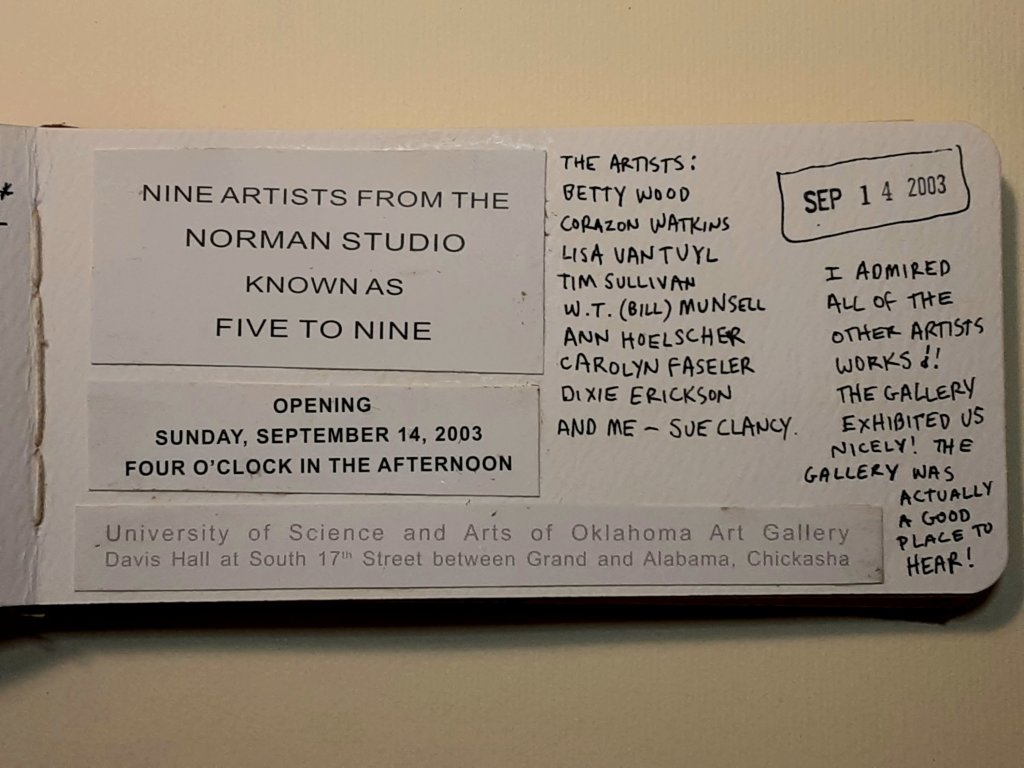 NINE ARTISTS FROM THE
NORMAN STUDIO
KNOWN AS
FIVE TO NINE
OPENING
SUNDAY, SEPTEMBER 14, 2003
FOUR O'CLOCK IN THE AFTERNOON
University of Science and Arts of Oklahoma Art Gallery
Davis Hall at South 17th Street between Grand and Alabama, Chickasha
THE ARTISTS:
BETTY WOOD
CORAZON WATKINS
LISA VANTUYL
TIM SULLIVAN
W.T. (BILL) MUNSELL
ANN HOELSCHER
CAROLYN FASELER
DIXIE ERICKSON
AND ME – SUE CLANCY.
SEP 14 2003
I ADMIRED
ALL OF THE
OTHER ARTISTS
WORKS!!
THE GALLERY
EXHIBITED US
NICELY! THE
GALLERY WAS
ACTUALLY
A GOOD
PLACE TO
HEAR!